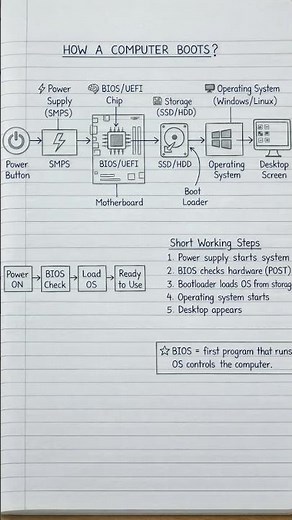 HOW A COMPUTER BOOTS?
Power
Supply
(SMPS)
BIOS/UEFI
Chip
Storage
(SSD/HDD)
Operating System
(Windows/Linux)
BIOS/UEFI
Power
Button
SMPS
SSD/HDD
Operating
System
Desktop
Screen
Motherboard
Boot
Loader
Short Working Steps
1. Power supply starts system
2. BIOS checks hardware (POST)
3. Bootloader loads OS from storag
4. Operating system starts
5. Desktop appears
Power
ON
BIOS
Check
Load
OS
Ready
to Use
☆ BIOS = first program that runs
OS controls the computer.